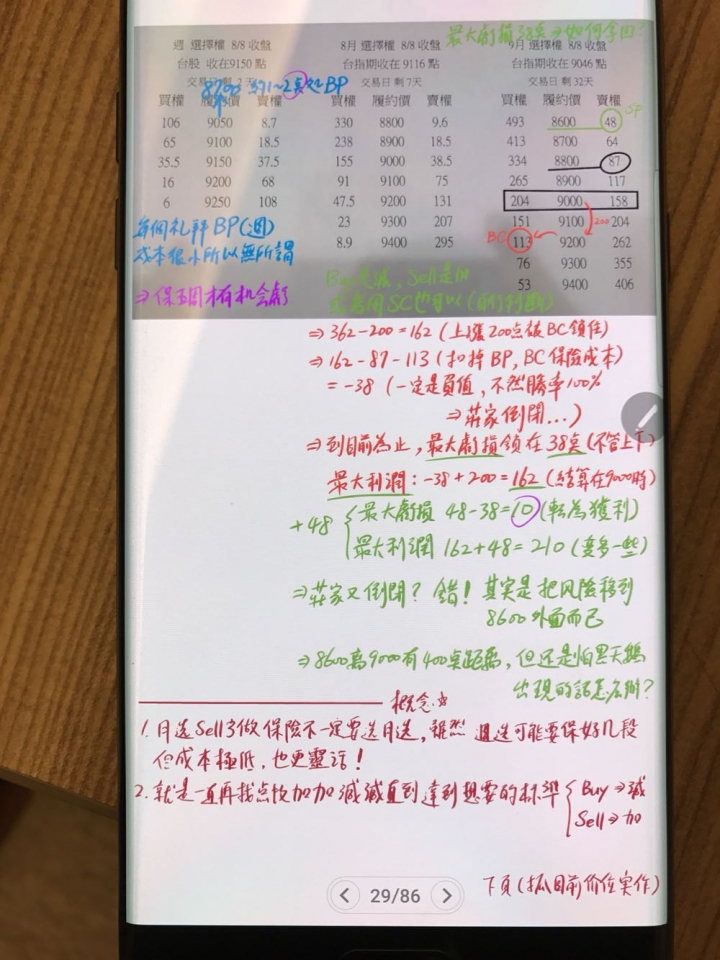 最大虧損38点⇒如何拿回?
週 選擇權 8/8 收盤
台股 收在9150 點
交易日 剩 2 天
買權 履約價 賣權
106 9050 8.7
65 9100 18.5
35.5 9150 37.5
16 9200 68
6 9250 108
8月 選擇權 8/8 收盤
台指期收在 9116 點
交易日 剩 7天
買權 履約價 賣權
330 8800 9.6
238 8900 18.5
155 9000 38.5
91 9100 75
47.5 9200 131
23 9300 207
8.9 9400 295
9月 選擇權 8/8 收盤
台指期收在 9046 點
交易日 剩 32天
買權 履約價 賣權
493 8600 48 SP
413 8700 64
334 8800 87
265 8900 117
204 9000 158
151 9100 204
200
BC 113 9200 262
76 9300 355
53 9400 406
8700 約1~2点之BP
每個礼拜BP(週)
成本很小所以無所謂
⇒保五周才有机会虧
Buy是減, Sell是加
⇒362-200=162 (上漲200点被BC鎖住)
⇒162-87-113 (扣掉BP, BC保險成本)
=-38 (一定是負值, 不然勝率100%
⇒莊家倒閉...)
⇒到目前為止, 最大虧損鎖在38点(不管上下)
最大利潤:-38+200=162 (結算在9000時)
+48 { 最大虧損 48-38=10 (轉為獲利)
最大利潤 162+48=210 (變多一些)
⇒莊家又倒閉? 錯! 其實是把风险移到
8600外面而已
⇒8600离9000有400点距離, 但还是怕黑天鵝
出現的話怎么辦?
概念☆
1. 月选Sell了做保險不一定要选月选, 雖然 週选可能要保好几段
但成本極低, 也更靈活!
2. 就是一直再找点位加加減減直到達到想要的标準 { Buy→減
Sell→加
下頁(抓目前价位实作)
29/86